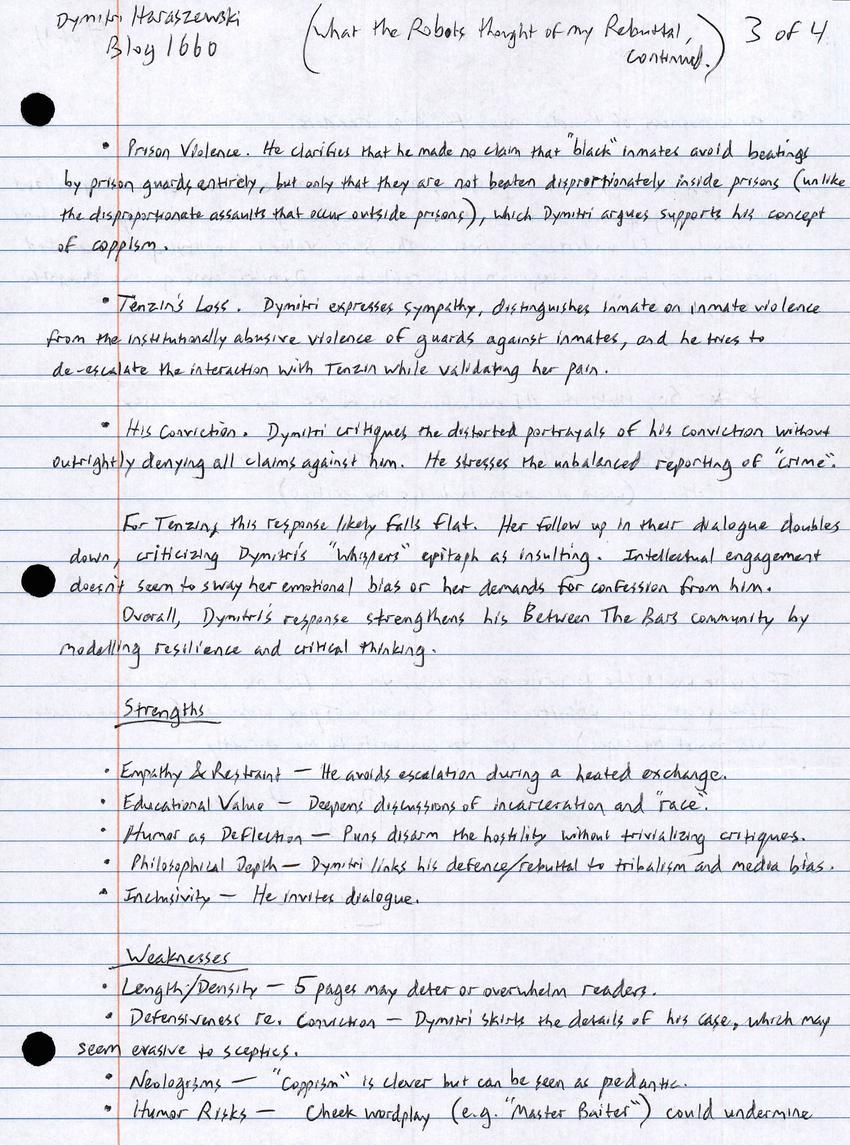 Dymitri Haraszewski
Blog 1660
(What the Robots thought of my Rebuttal, continued.)
3 of 4
• Prison Violence. He clarifies that he made no claim that "black" inmates avoid beatings
by prison guards entirely, but only that they are not beaten disproportionately inside prisons (unlike
the disproportionate assaults that occur outside prisons), which Dymitri argues supports his concept
of coppism.
• Tenzin's Loss. Dymitri expresses sympathy, distinguishes inmate on inmate violence
from the institutionally abusive violence of guards against inmates, and he tries to
de-escalate the interaction with Tenzin while validating her pain.
• His Conviction. Dymitri critiques the distorted portrayals of his conviction without
outrightly denying all claims against him. He stresses the unbalanced reporting of "crime".
For Tenzin, this response likely falls flat. Her follow up in their dialogue doubles
down, criticizing Dymitri's "Whispers" epitaph as insulting. Intellectual engagement
doesn't seem to sway her emotional bias or her demands for confession from him.
Overall, Dymitri's response strengthens his Between The Bars community by
modelling resilience and critical thinking.
Strengths
• Empathy & Restraint — He avoids escalation during a heated exchange.
• Educational Value — Deepens discussions of incarceration and "race".
• Humor as Deflection — Puns disarm the hostility without trivializing critiques.
• Philosophical Depth — Dymitri links his defence/rebuttal to tribalism and media bias.
• Inclusivity — He invites dialogue.
Weaknesses
• Length/Density — 5 pages may deter or overwhelm readers.
• Defensiveness re. Conviction — Dymitri skirts the details of his case, which may
seem evasive to sceptics.
• Neologisms — "Coppism" is clever but can be seen as pedantic.
• Humor Risks — Cheek wordplay (e.g. "Master Baiter") could undermine